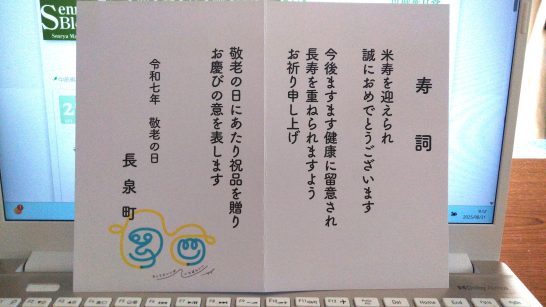 寿詞
米寿を迎えられ
誠におめでとうございます
今後ますます健康に留意され
長寿を重ねられますよう
お祈り申し上げ
敬老の日にあたり祝品を贈り
お慶びの意を表します
令和七年 敬老の日
長泉町
Senr
Blo
Senrya Ma
2025/08/31
F2
F3
F4
F5
F6
F7
F8
F9
F10
F11
F12
Del
Home
End